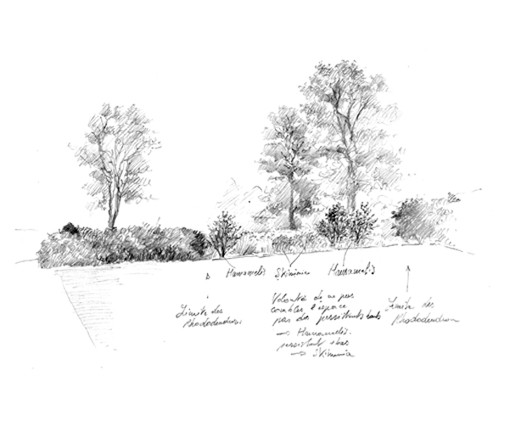 Hamamelis Skimmia Hamamelis
Limite des
Rhododendrons
Volonté de ne pas
combler l'espace
par des persistants hauts
→ Hamamelis.
persistants bas
→ Skimmia
Limite des
Rhododendron